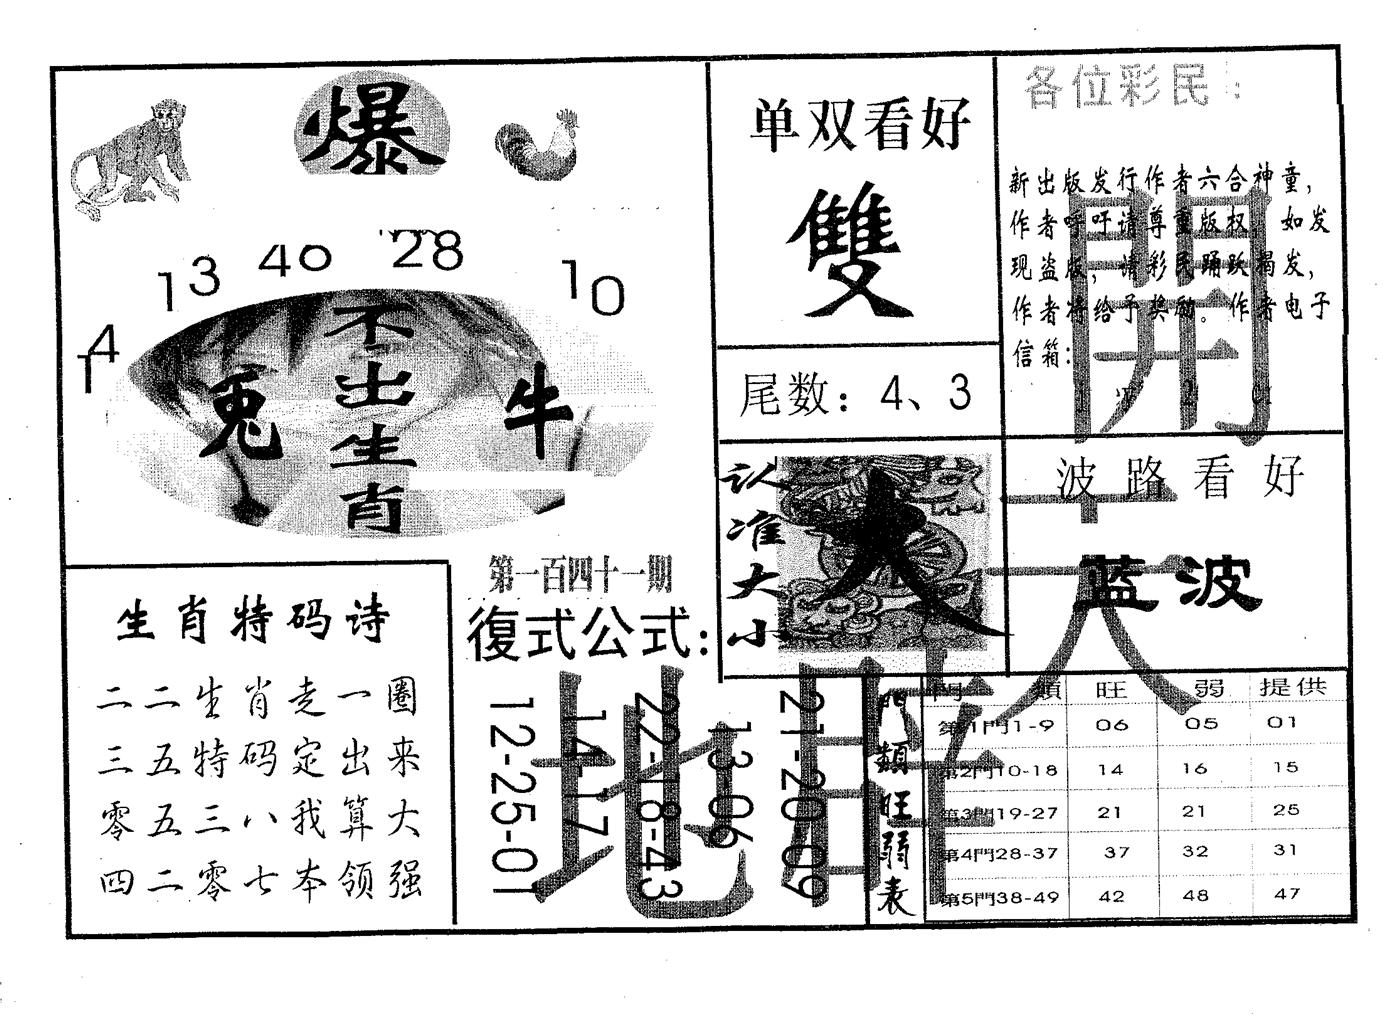 爆
14 13 40 28 10
不出生肖
兔
牛
单双看好
雙
尾数：4、3
各位彩民：
新出版发行作者六合神童，
作者呼吁请尊重版权，如发
现盗版，请彩民踊跃揭发，
作者将给予奖励。作者电子
信箱：
認准大小
大
波路看好
蓝波
生肖特码诗
二二生肖走一圈
三五特码定出来
零五三八我算大
四二零七本领强
第一百四十一期
復式公式：
12-25-01
14-17
22-18-43
13-06
21-20-09
門類旺弱表
門類 旺 弱 提供
第1門1-9 06 05 01
第2門10-18 14 16 15
第3門19-27 21 21 25
第4門28-37 37 32 31
第5門38-49 42 48 47
開
天
地